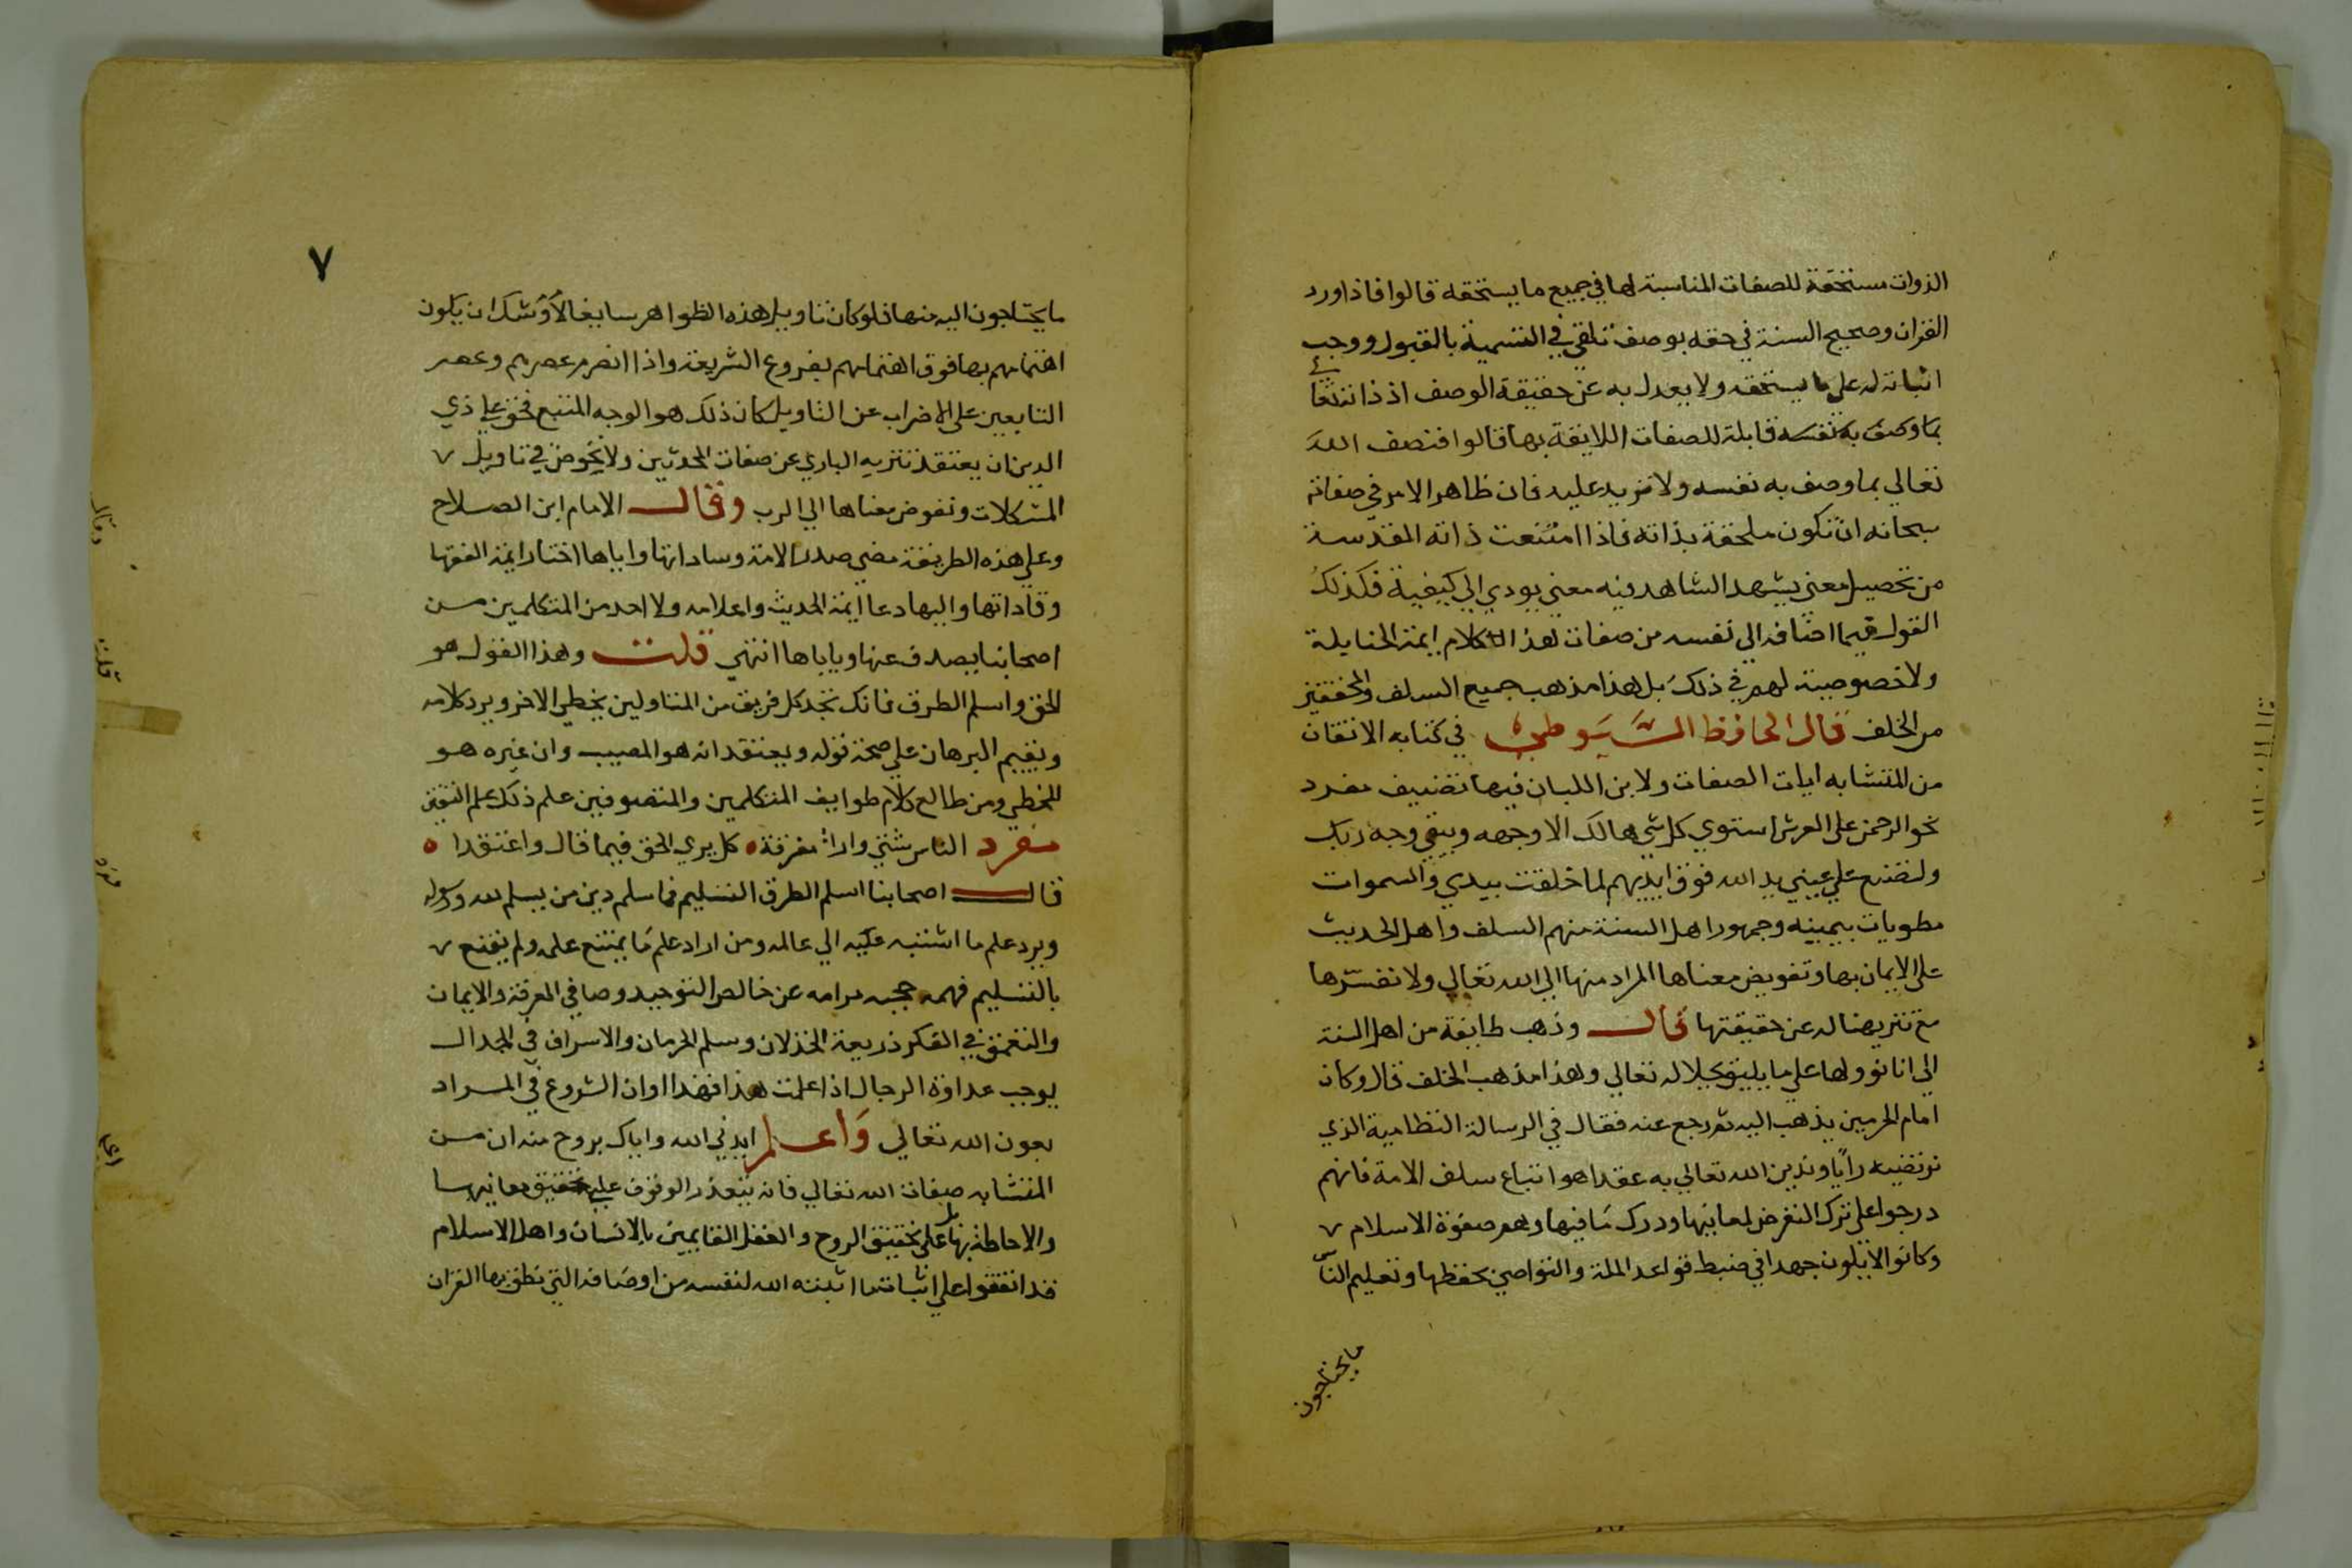 الذوات مستحقة للصفات المناسبة لها في جميع ما يستحقه قالوا فاذا ورد
القران وصحيح السنة في حقه بوصف تلقي في التسمية بالقبول ووجب
اثباته له علي ما يستحقه ولا يعدل به عن حقيقة الوصف اذ ذاته تعالي
بما وصف به نفسه قابلة للصفات اللايقة بها قالوا فنصف الله
تعالي بما وصف به نفسه ولا مزيد عليه فان ظاهر الامر في صفاته
سبحانه ان تكون ملحقة بذاته فاذا امتنعت ذاته المقدسة
من تحصيل معني يشهد الشاهد فيه معني يودي الي كيفية فكذلك
القول فيما اضافه الي نفسه من صفاته هذا الكلام ايمة الحنابلة
ولا خصوصية لهم في ذلك بل هذا مذهب جميع السلف والمحققين
من الخلف قال الحافظ السيوطي في كتابه الاتقان
من المتشابه ايات الصفات ولابن اللبان فيها تصنيف مفرد
نحو الرحمن علي العرش استوي كل شي هالك الا وجهه ويبقي وجه ربك
ولتصنع علي عيني يد الله فوق ايديهم لما خلقت بيدي والسموات
مطويات بيمينه وجمهور اهل السنة منهم السلف واهل الحديث
علي الايمان بها وتفويض معناها المراد منها الي الله تعالي ولا نفسرها
مع تنزيهنا له عن حقيقتها قال وذهب طايفة من اهل السنة
الي انا نوولها علي ما يليق بجلاله تعالي وهذا مذهب الخلف قال وكان
امام الحرمين يذهب اليه ثم رجع عنه فقال في الرسالة النظامية الذي
نرتضيه رايا وندين الله تعالي به عقدا هو اتباع سلف الامة فانهم
درجوا علي ترك التعرض لمعانيها ودرك ما فيها وهم صفوة الاسلام
وكانوا لا يالون جهدا في ضبط قواعد الملة والتواصي بحفظها وتعليم الناس
ما يحتاجون
٧
ما يحتاجون اليه منها فلو كان تاويل هذه الظواهر سايغا لاوشك ان يكون
اهتمامهم بها فوق اهتمامهم بفروع الشريعة واذا انصرم عصرهم وعصر
التابعين علي الاضراب عن التاويل كان ذلك هو الوجه المتبع فحق علي ذي
الدين ان يعتقد تنزيه الباري عن صفات المحدثين ولا يخوض في تاويل
المشكلات وتفوض معناها الي الرب وقال الامام ابن الصلاح
وعلي هذه الطريقة مضي صدر الامة وساداتها واياها اختار ايمة الفقها
وقاداتها واليها دعا ايمة الحديث واعلامه ولا احد من المتكلمين من
اصحابنا يصدف عنها وياباها انتهي قلت وهذا القول هو
الحق واسلم الطرق فانك تجد كل فريق من المتاولين يخطي الاخر ويرد كلامه
ويقيم البرهان علي صحة قوله ويعتقد انه هو المصيب وان غيره هو
المخطي ومن طالع كلام طوايف المتكلمين والمتصوفين علم ذلك علم اليقين
مفرد الناس شتي وارا مفرقة كل يري الحق فيما قال واعتقدا
قال اصحابنا اسلم الطرق التسليم فما سلم دين من يسلم لله ورسوله
ويرد علم ما اشتبه عليه الي عالمه ومن اراد علم ما يمتنع علمه ولم يقنع
بالتسليم فهمه حجبه مرامه عن خالص التوحيد وصافي المعرفة والايمان
والتعمق في الفكر ذريعة الخذلان وسلم الحرمان والاسراف في الجدال
يوجب عداوة الرجال اذا علمت هذا فهذا اوان الشروع في المراد
بعون الله تعالي واعلم ايدني الله واياك بروح منه ان من
المتشابه صفات الله تعالي فانه يتعذر الوقوف علي تحقيق معانيها
والاحاطة بها بل علي تحقيق الروح والعقل القايمين بالانسان واهل الاسلام
قد اتفقوا علي اثبات ما اثبته الله لنفسه من اوصافه التي نطق بها القران
وقال
قلت
مفرد